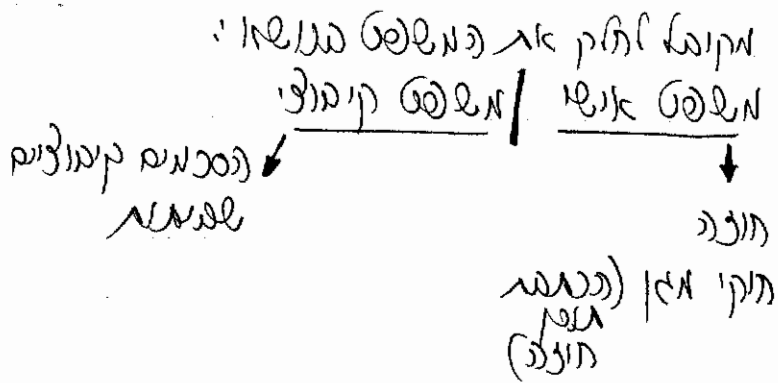 מקובל לחלק את המשפט בנושא:
משפט אישי / משפט קיבוצי
חוזה
חוקי מגן (הכתבת
תוכן
חוזה)
הסכמים קיבוציים
שביתות